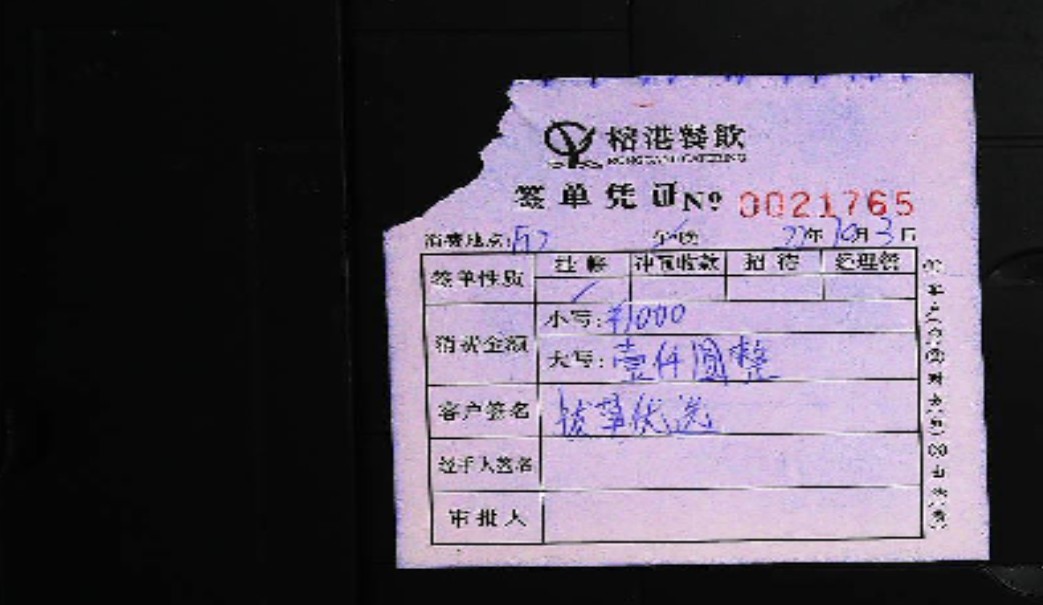 榕港餐飲
RONGGANG CATERING
签单凭证 Nº 0021765
消费地点: 午晚 22年10月3日
签单性质 挂帐 冲预收款 招待 经理签
消费金额 小写:¥1000
大写:壹仟圆整
客户签名 拔草优选
经手人签名
审批人